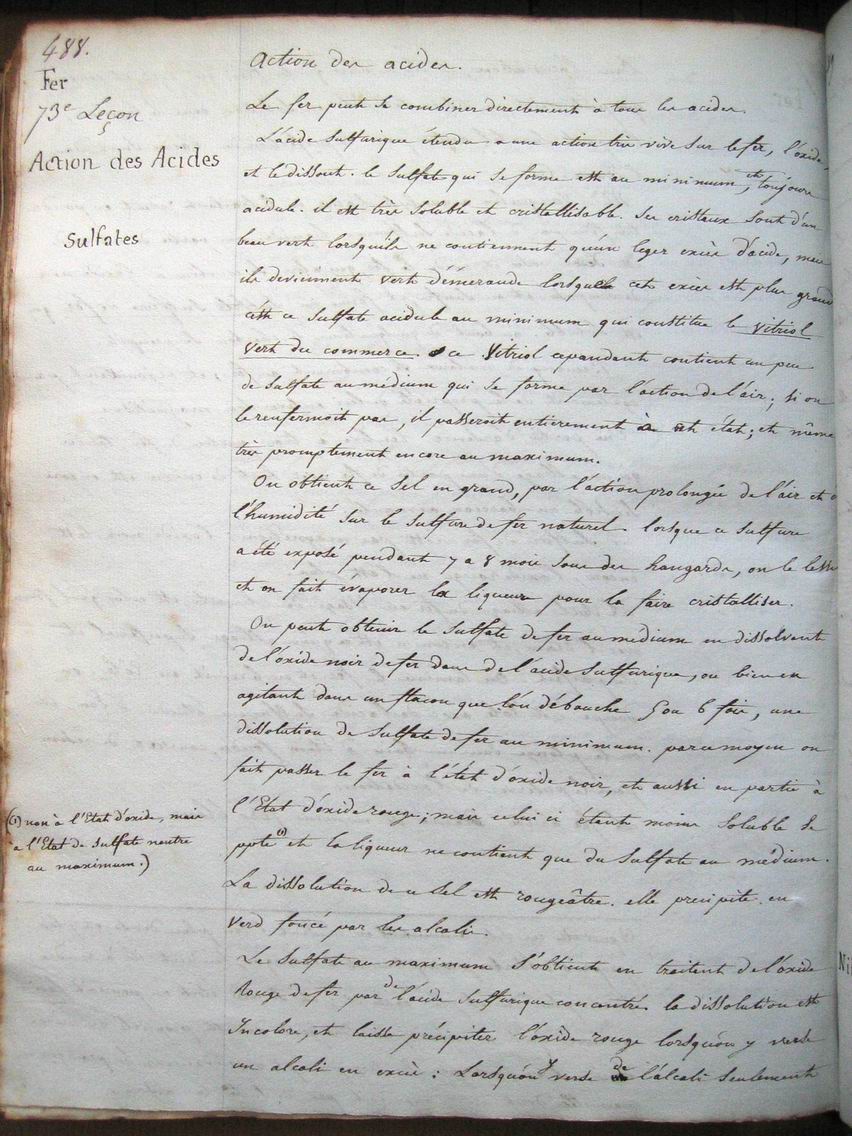 488.
Fer
73e Leçon
Action des Acides
Sulfates
Action des acides.
Le fer peut se combiner directement à tous les acides.
L'acide sulfurique étendu a une action très vive sur le fer, l'oxide,
et le dissout. le sulfate qui se forme est au minimum, et toujours
acidule. il est très soluble et cristallisable. ses cristaux sont d'un
beau vert lorsqu'ils ne contiennent qu'un leger excès d'acide, mais
ils deviennent vert d'émeraude lorsque cet excès est plus grand
c'est ce sulfate acidule au minimum qui constitue le vitriol
vert du commerce. ce vitriol cependant contient un peu
de sulfate au médium qui se forme par l'action de l'air; si on
le renfermoit pas, il passeroit entierement à cet état; et même
très promptement encore au maximum.
On obtient ce sel en grand, par l'action prolongée de l'air et
l'humidité sur le sulfure de fer naturel. lorsque ce sulfure
a été exposé pendant 7 a 8 mois sous des hangards, on le
et on fait évaporer la liqueur pour la faire cristalliser.
On peut obtenir le sulfate de fer au medium en dissolvant
de l'oxide noir de fer dans de l'acide sulfurique, ou bien en
agitant dans un flacon que l'on débouche 5 ou 6 fois, une
dissolution de sulfate de fer au minimum. par ce moyen on
fait passer le fer à l'état d'oxide noir, et aussi en partie à
l'Etat d'oxide rouge; mais celui ci étant moins soluble se
ppte (1) et la liqueur ne contient que du sulfate au médium.
La dissolution de ce sel est rougeâtre. elle precipite en
verd foncé par les alcalis.
Le sulfate au maximum s'obtient en traitent de l'oxide
rouge de fer par de l'acide sulfurique concentré. la dissolution est
Incolore, et laisse précipiter l'oxide rouge lorsqu'on y verse
un alcali en excès: Lorsqu'on y verse de l'alcali seulement
((1) non à l'Etat d'oxide, mais
a l'Etat de sulfate neutre
au maximum.)